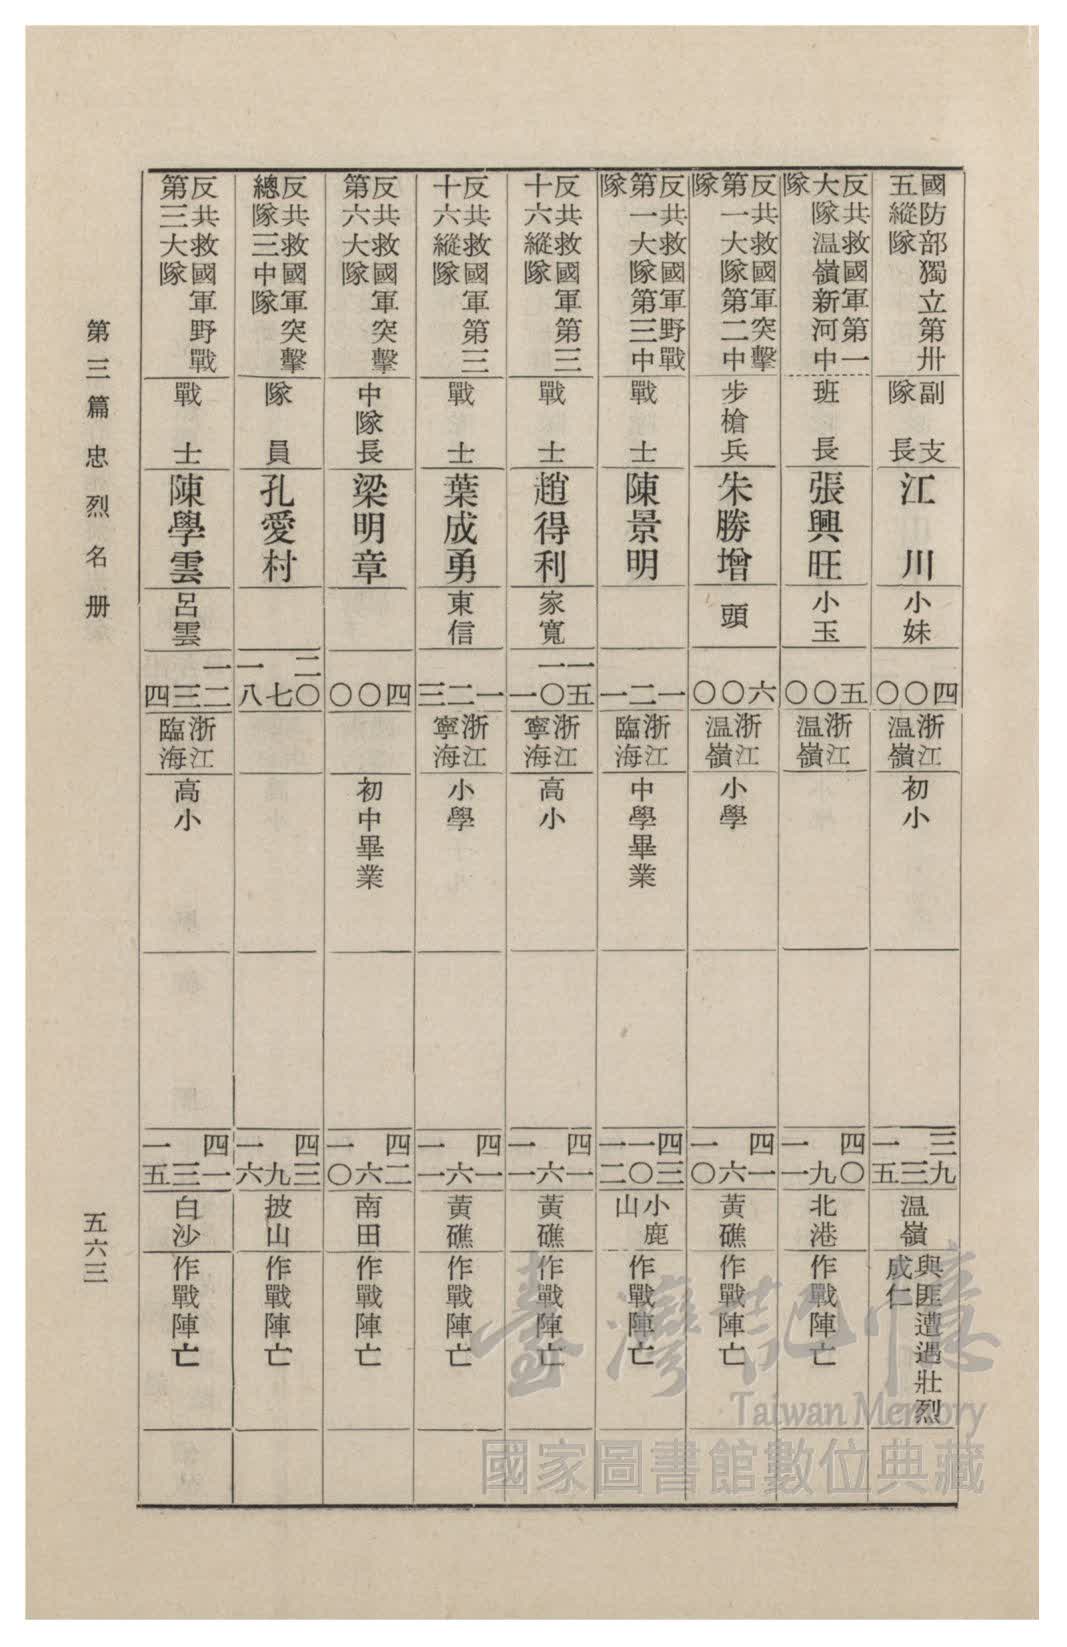 國防部獨立第卅
五縱隊
副支
隊長
江川
小妹
四
〇
〇
浙江
温嶺
初小
三九
三
一五
温嶺
與匪遭遇壯烈
成仁
反共救國軍第一
大隊温嶺新河中
隊
班長
張興旺
小玉
五
〇
〇
浙江
温嶺
四〇
九
一一
北港
作戰陣亡
反共救國軍突擊
第一大隊第二中
隊
步槍兵
朱勝增
頭
六
〇
〇
浙江
温嶺
小學
四一
六
一〇
黃礁
作戰陣亡
反共救國軍野戰
第一大隊第三中
隊
戰士
陳景明
一
二
一
浙江
臨海
中學畢業
四三
一〇
一二
小鹿
山
作戰陣亡
反共救國軍第三
十六縱隊
戰士
趙得利
家寬
一五
一〇
一
浙江
寧海
高小
四一
六
一一
黃礁
作戰陣亡
反共救國軍第三
十六縱隊
戰士
葉成勇
東信
一
二
三
浙江
寧海
小學
四一
六
一一
黃礁
作戰陣亡
反共救國軍突擊
第六大隊
中隊長
梁明章
四
〇
〇
初中畢業
四二
六
一〇
南田
作戰陣亡
反共救國軍突擊
總隊三中隊
隊員
孔愛村
二〇
七
一八
四三
九
一六
披山
作戰陣亡
反共救國軍野戰
第三大隊
戰士
陳學雲
呂雲
一二
三
四
浙江
臨海
高小
四一
三
一五
白沙
作戰陣亡
第三篇 忠烈名册
五六三
臺灣記憶
Taiwan Memory
國家圖書館數位典藏